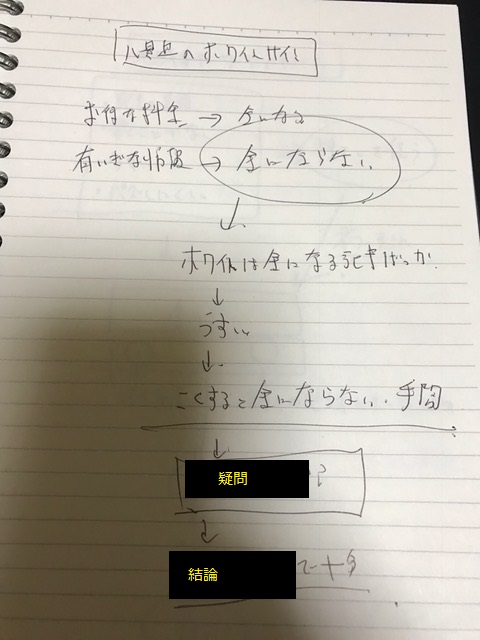 八具足のホワイトサイト
お得な料金 → 金になる
有いぎな情報 → 金にならない
ホワイトは金になる記事ばっか
うすい
こくすると金にならない、手間
疑問
結論